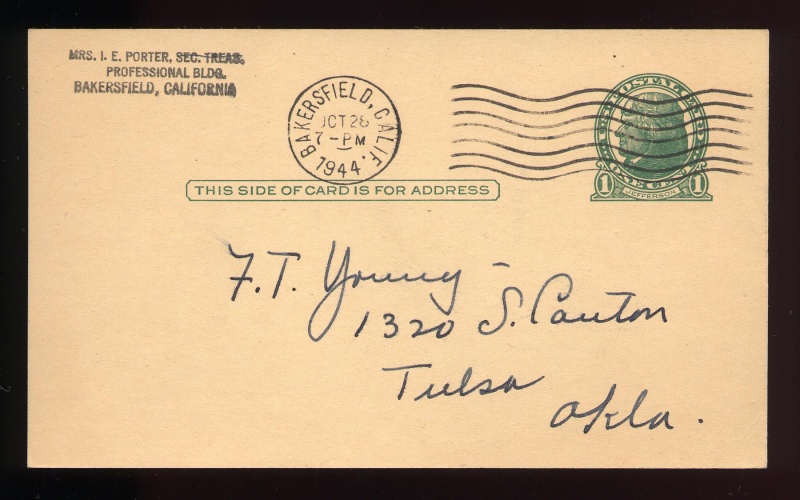 MRS. I. E. PORTER, SEC. TREAS.
PROFESSIONAL BLDG.
BAKERSFIELD, CALIFORNIA
BAKERSFIELD, CALIF.
OCT 28
7-PM
1944
U.S. POSTAL CARD
ONE CENT
1 JEFFERSON 1
THIS SIDE OF CARD IS FOR ADDRESS
F.T. Young -
1320 S. Canton
Tulsa
Okla.